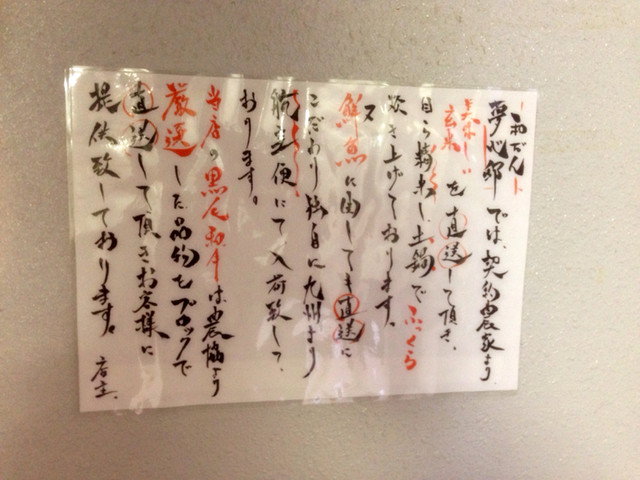 夢心邸では、契約農家より
美味しい玄米を直送して頂き、
自ら精米し、土鍋でふっくら
炊き上げております。
又
鮮魚に関しても直送に
こだわり独自に九州より
航空便にて、入荷致して
おります。
当店の黒毛和牛は農協より
厳選した品物をブロックで
直送して頂きお客様に
提供致しております。
店主、